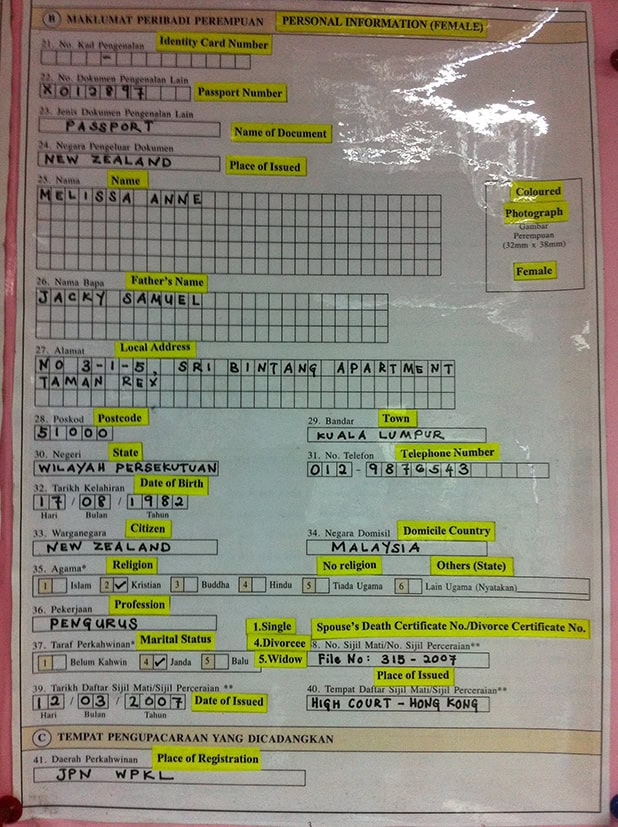 B MAKLUMAT PERIBADI PEREMPUAN PERSONAL INFORMATION (FEMALE)
21. No. Kad Pengenalan Identity Card Number
-
22. No. Dokumen Pengenalan Lain
X012897 Passport Number
23. Jenis Dokumen Pengenalan Lain
PASSPORT Name of Document
24. Negara Pengeluar Dokumen
NEW ZEALAND Place of Issued
25. Nama Name
MELISSA ANNE
Coloured
Photograph
Gambar
Perempuan
(32mm x 38mm)
Female
26. Nama Bapa Father's Name
JACKY SAMUEL
27. Alamat Local Address
NO 3-1-5, SRI BINTANG APARTMENT
TAMAN REX
28. Poskod Postcode 29. Bandar Town
51000 KUALA LUMPUR
30. Negeri State 31. No. Telefon Telephone Number
WILAYAH PERSEKUTUAN 012-9876543
32. Tarikh Kelahiran Date of Birth
17/08/1982
Hari Bulan Tahun
33. Warganegara Citizen 34. Negara Domisil Domicile Country
NEW ZEALAND MALAYSIA
35. Agama* Religion No religion Others (State)
1 Islam 2 ✓ Kristian 3 Buddha 4 Hindu 5 Tiada Ugama 6 Lain Ugama (Nyatakan)
36. Pekerjaan Profession
PENGURUS 1.Single Spouse's Death Certificate No./Divorce Certificate No.
37. Taraf Perkahwinan* Marital Status 4.Divorcee 8. No. Sijil Mati/No. Sijil Perceraian**
1 Belum Kahwin 4 ✓ Janda 5 Balu 5.Widow File No: 315-2007
Place of Issued
39. Tarikh Daftar Sijil Mati/Sijil Perceraian ** 40. Tempat Daftar Sijil Mati/Sijil Perceraian**
12/03/2007 Date of Issued HIGH COURT - HONG KONG
Hari Bulan Tahun
C TEMPAT PENGUPACARAAN YANG DICADANGKAN
41. Daerah Perkahwinan Place of Registration
JPN WPKL
3